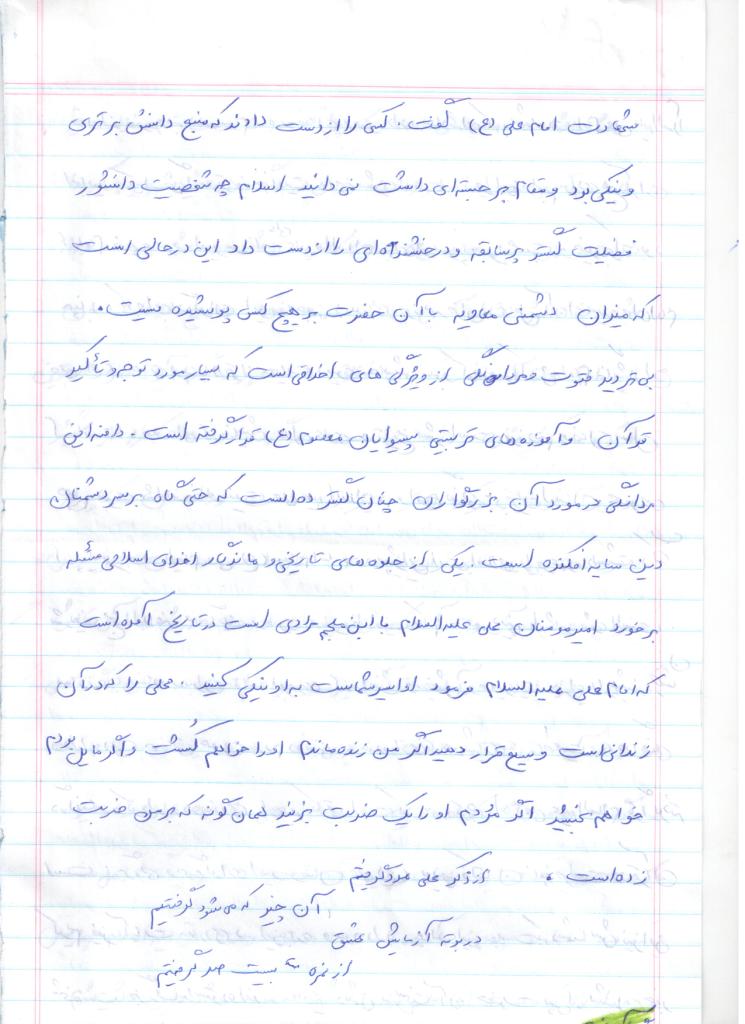 شهادت امام علی (ع) گفت . کسی را از دست دادند که منبع دانش برتری
و نیکی بود و مقام برجسته‌ای داشت نمی دانید اسلام چه شخصیت دانشور
فضیلت گستر پرسابقه و درخشنده‌ای را از دست داد این در حالی است
که میزان دشمنی معاویه با آن حضرت بر هیچ کس پوشیده نیست .
بی تردید فتوت و مردانگی از ویژگی های اخلاقی است که بسیار مورد توجه و تأکید
قرآن و آموزه های تربیتی پیشوایان معصوم (ع) قرار گرفته است . دامنه این
مردانگی در مورد آن بزرگواران چنان گسترده است که حتی گاه بر سر دشمنان
دین سایه افکنده است . یکی از جلوه های تاریخی و ماندگار اخلاق اسلامی مسئله
برخورد امیرمومنان علی علیه السلام با ابن ملجم مرادی است در تاریخ آمده است
که امام علی علیه السلام فرمود او اسیر شماست به او نیکی کنید . محلی را که در آن
زندانی است وسیع قرار دهید اگر من زنده ماندم او را خواهم کُشت و اگر مایل بودم
خواهم بخشید اگر مُردم او را یک ضربت بزنید همان گونه که بر من ضربت
زده است .
از ذکر علی مدد گرفتیم
آن چیز که می شود گرفتیم
در بوته آزمایش عشق
از نمره بیست صد گرفتیم